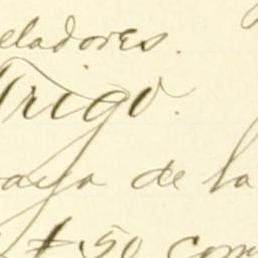 eladores.
Trigo.
aya de la
$.50 com